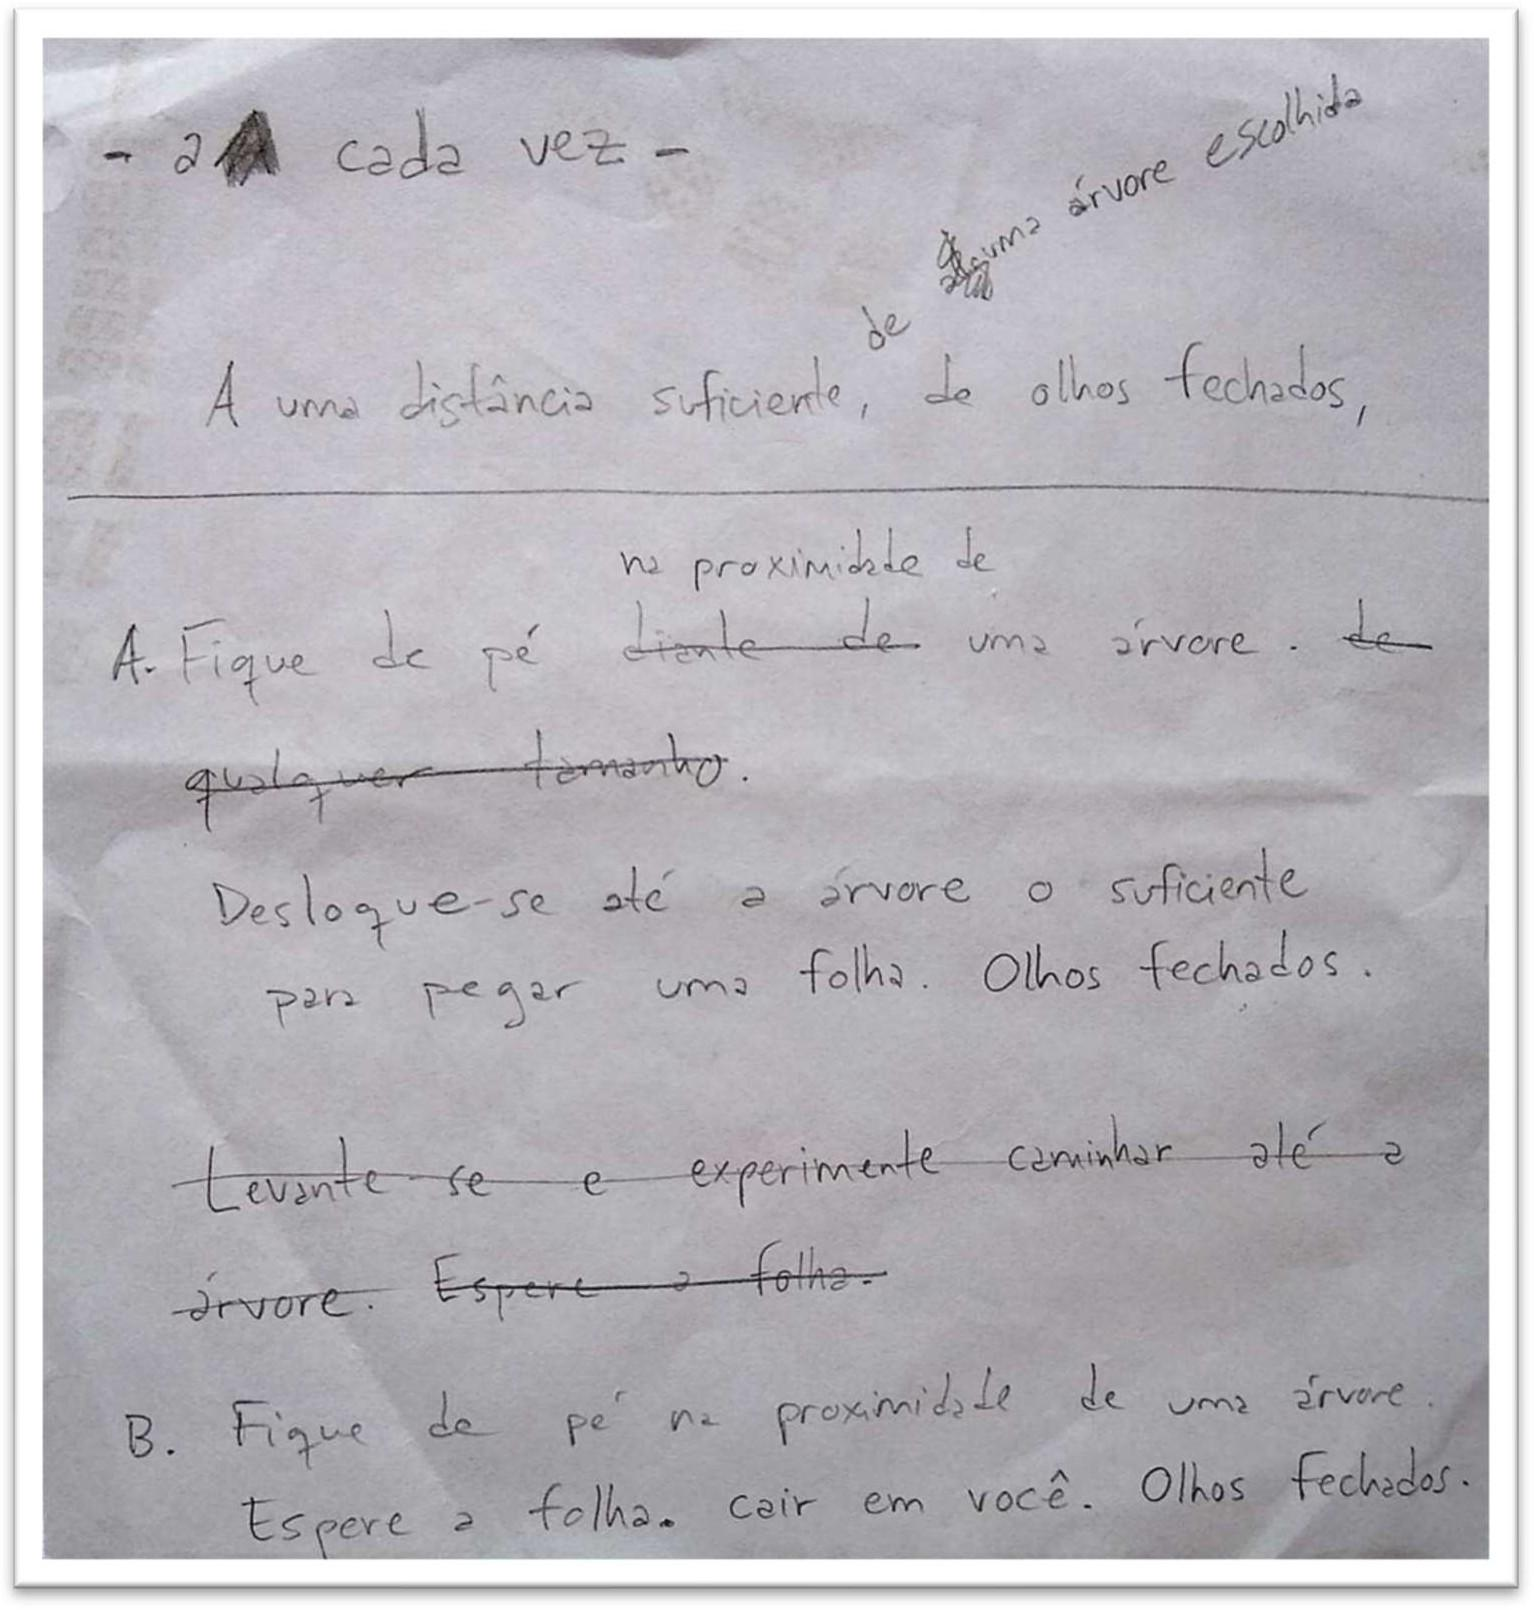 - a cada vez -
de alguma árvore escolhida
A uma distância suficiente, de olhos fechados,
na proximidade de
A. Fique de pé diante de uma árvore. de
qualquer tamanho.
Desloque-se até a árvore o suficiente
para pegar uma folha. Olhos fechados.
Levante-se e experimente caminhar até a
árvore. Espere a folha.
B. Fique de pé na proximidade de uma árvore.
Espere a folha. cair em você. Olhos fechados.